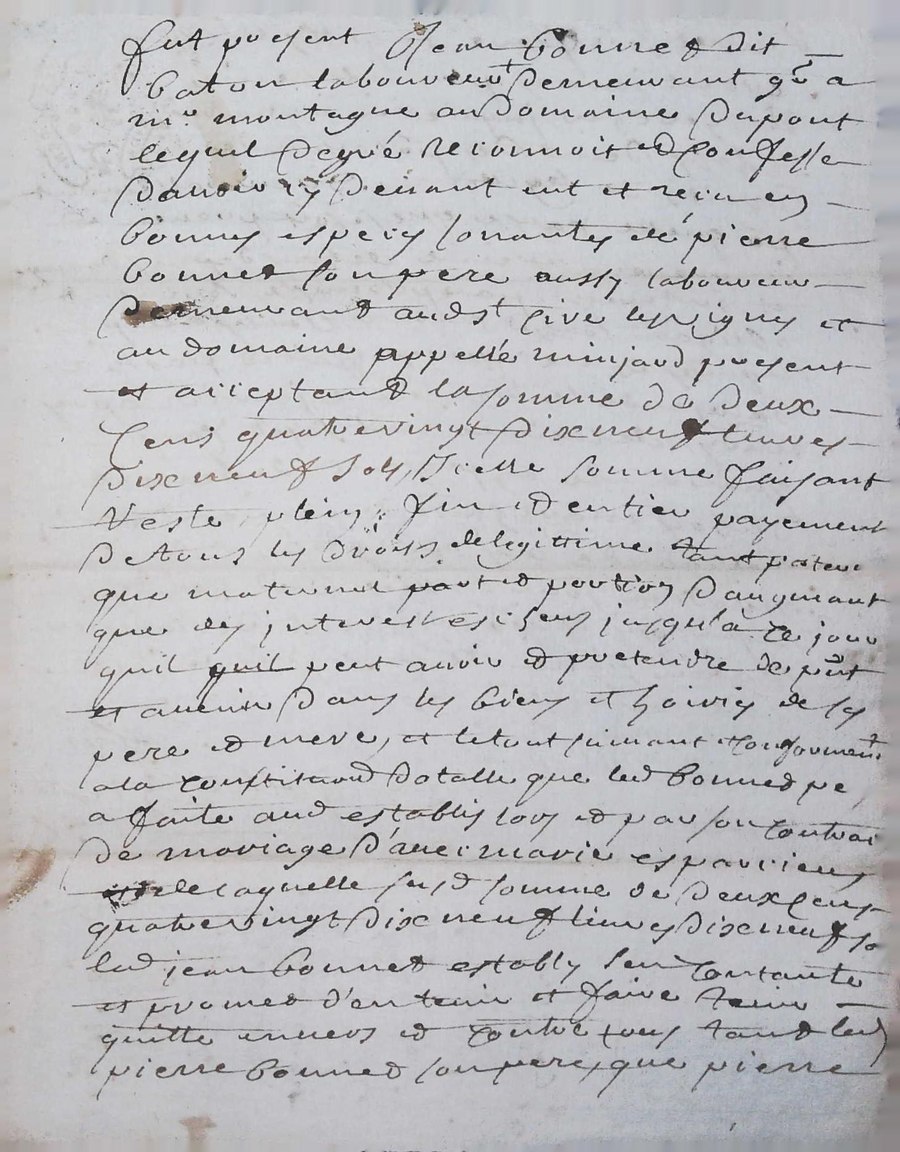 fut present Jean bonned dit
baton laboureur demeurant gr a
mr montagne au domaine dupont
lequel degré reconnoit et confesse
davoir cy devant eut et receu en
bonnes especes sonnantes de pierre
bonned son pere aussy laboureur
demeurant audt cire les vignes et
au domaine appellé minjard present
et acceptand la somme de deux
cens quatrevingt dixneuf livres
dixneuf sols, Icelle somme faisant
reste plein fin et entier payement
de tous les droits de legittime tant pater
que maternel part et portion daugmant
que des interest escheus jusqu'a ce jour
quil quil peut avoir et pretendre de pñt
et avenir dans les biens et hoiries de ses
pere et mere, et le tout suivant et conformemt
a la constitaond dotalle que led bonned pe
a faite aud estably lors et par son contrat
de mariage d'avec marie esparcieux
de laquelle susd somme de deux cens
quatrevingt dixneuf livres dixneuf so
led jean bonned estably sen contante
et promed d'en tenir et faire tenir
quitte envers et contre tous tand led
pierre bonned son pere, que pierre